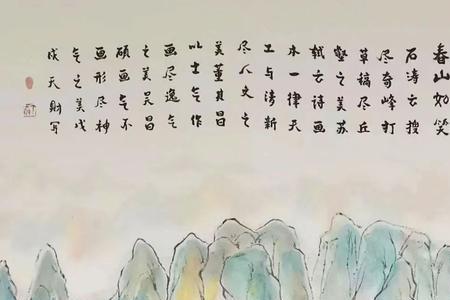 春山如笑
石涛云搜
尽奇峰打
草稿尽丘
壑之美苏
轼云诗画
本一律天
工与清新
尽人文之
美董其昌
以士气作
画尽逸气
之美吴昌
硕画气不
画形尽神
气之美戊
戌天财写